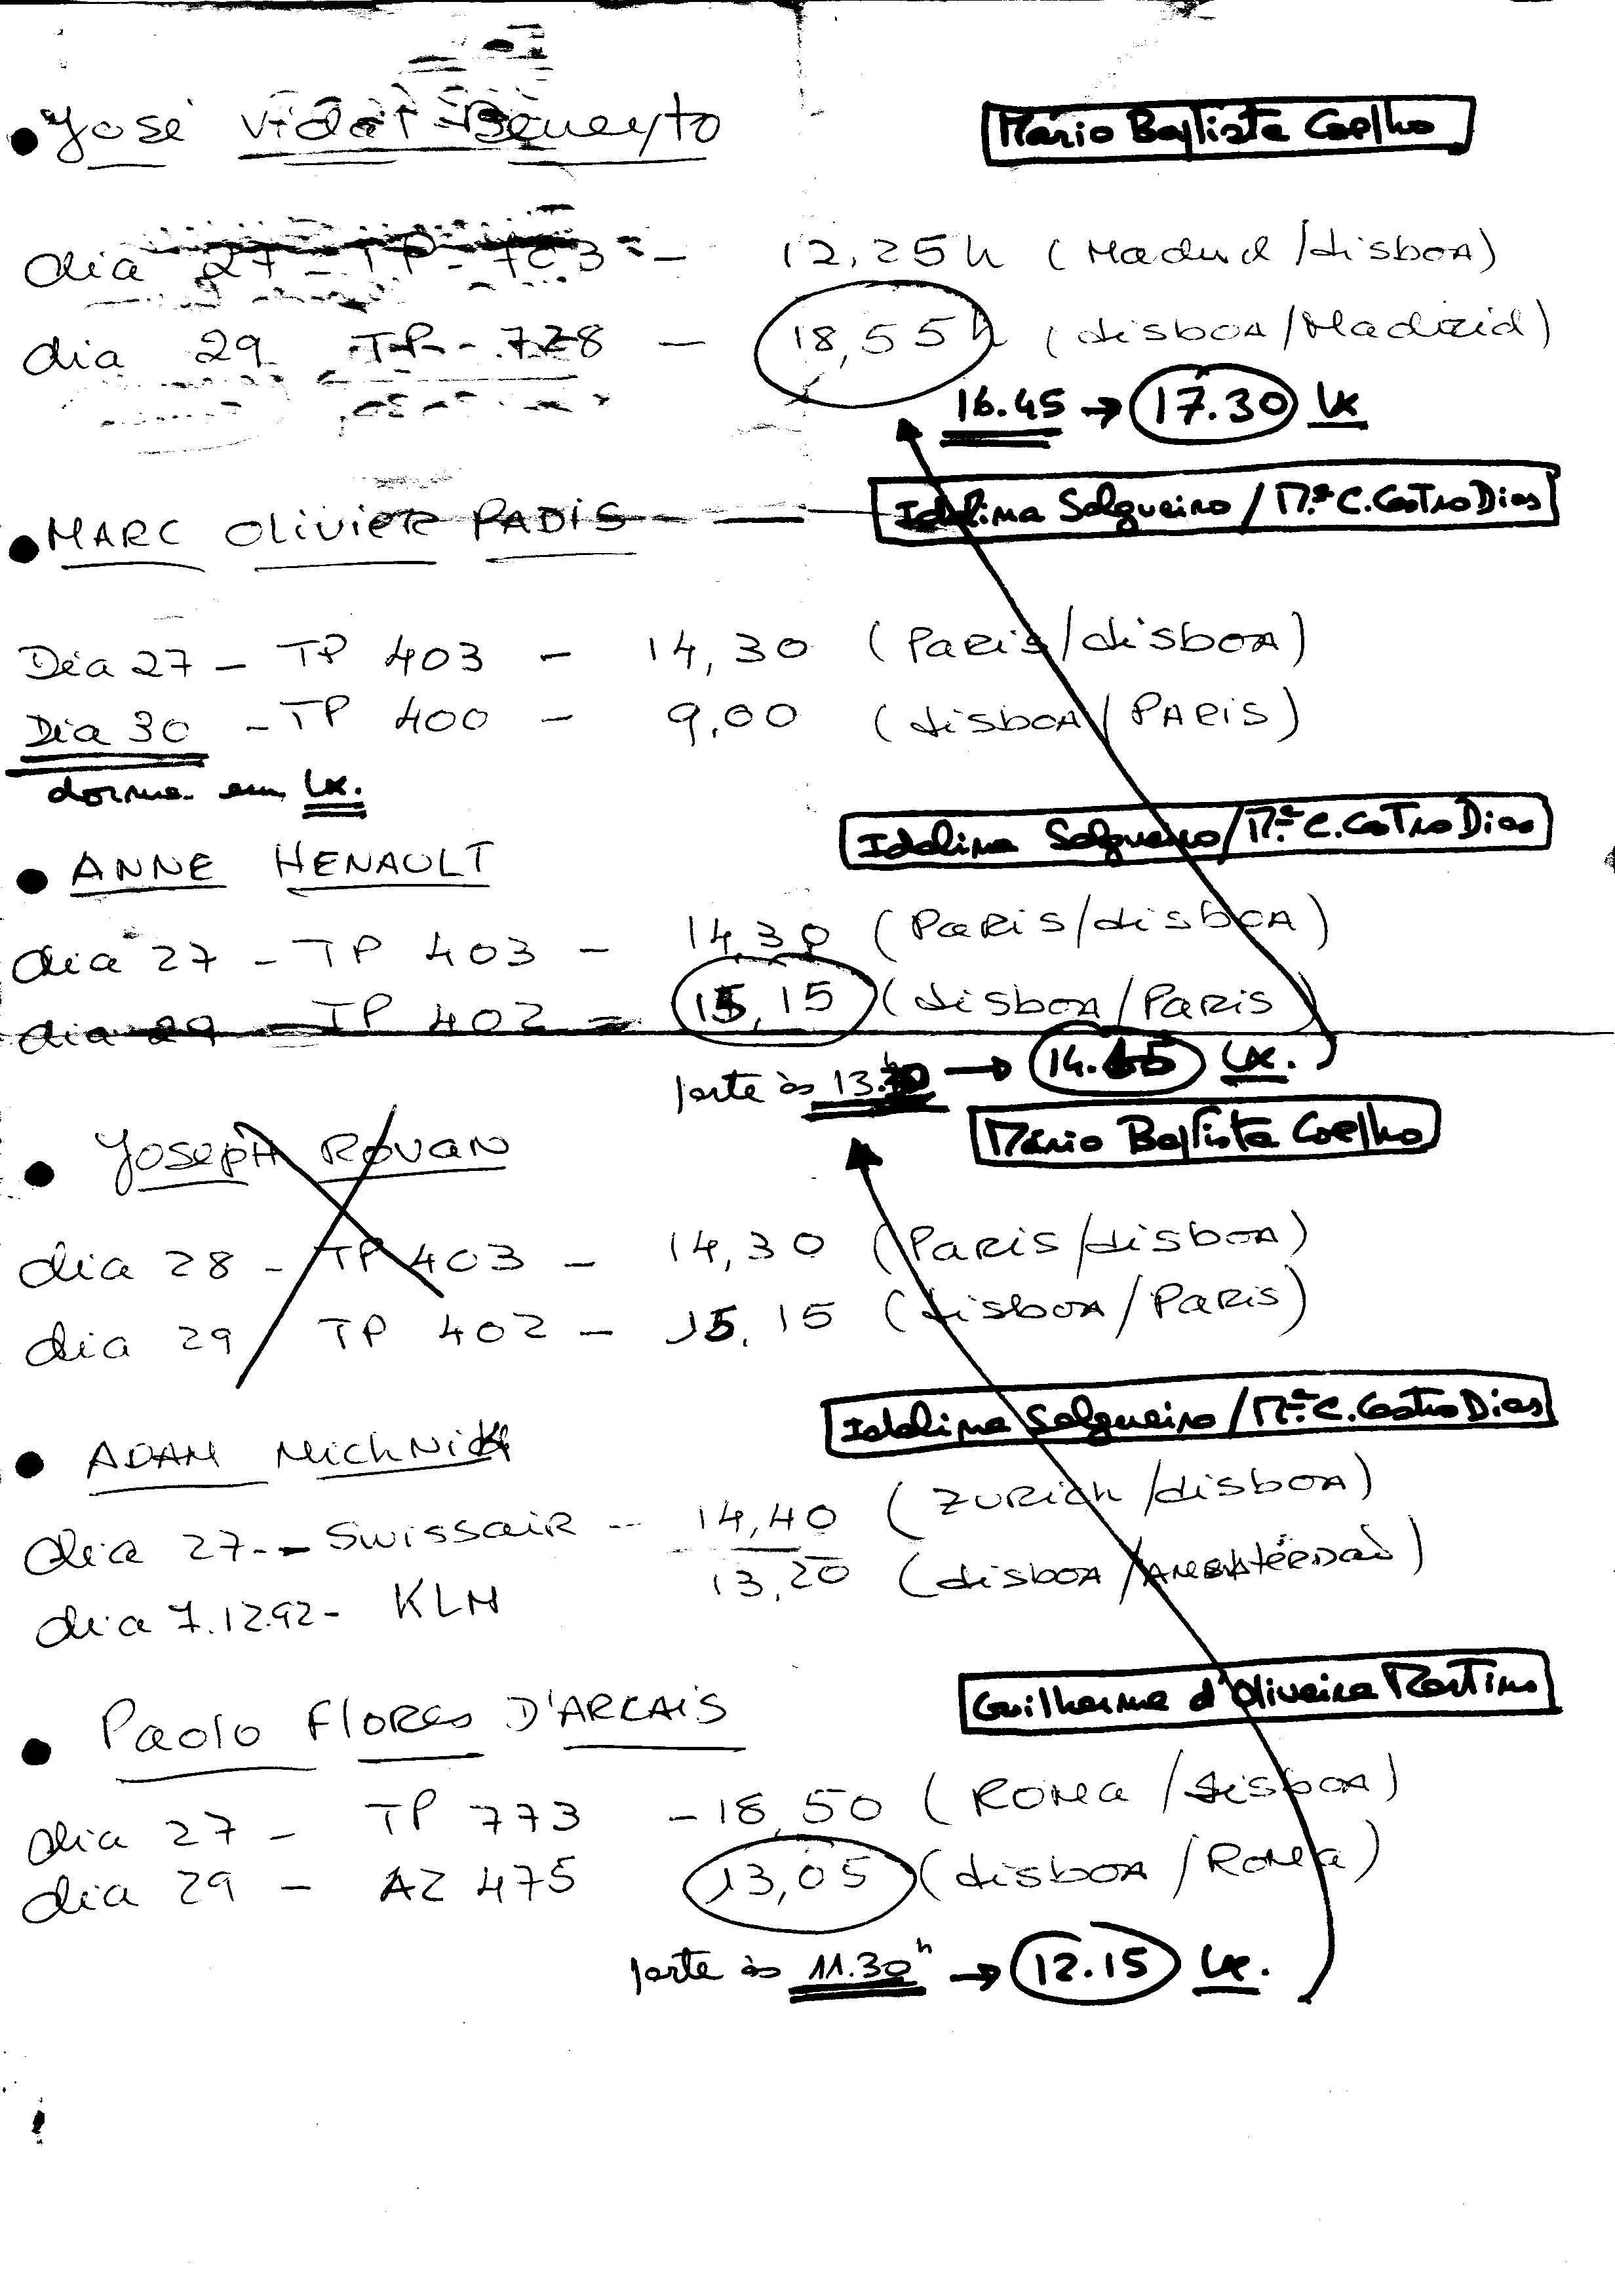 • José Vidal-Beneyto
Mário Baptista Coelho
dia 27 - TP - 703 - 12,25h (Madrid/Lisboa)
dia 29 TP - 728 - 18,55h (Lisboa/Madrid)
16.45 → 17.30 Lx
• MARC OLIVIER PADIS -
Idalina Salgueiro / M.ª C. Castro Dias
Dia 27 - TP 403 - 14,30 (Paris/Lisboa)
Dia 30 - TP 400 - 9,00 (Lisboa/PARIS)
dorme em Lx.
Idalina Salgueiro / M.ª C. Castro Dias
• ANNE HENAULT
dia 27 - TP 403 - 14,30 (Paris/Lisboa)
dia 29 - TP 402 - 15,15 (Lisboa/Paris)
parte às 13. → 14.15 Lx.
Mário Baptista Coelho
• Joseph Rovan
dia 28 - TP 403 - 14,30 (Paris/Lisboa)
dia 29 TP 402 - 15,15 (Lisboa/Paris)
Idalina Salgueiro / M.ª C. Castro Dias
• ADAM MichNick
dia 27 - Swissair - 14,40 (Zurich/Lisboa)
dia 7.12.92 - KLM 13,20 (Lisboa/Amesterdão)
Guilherme d'Oliveira Martins
• Paolo Flores D'ARCAIS
dia 27 - TP 773 - 18,50 (Roma/Lisboa)
dia 29 - AZ 475 13,05 (Lisboa/Roma)
parte às 11.30h → 12.15 Lx.